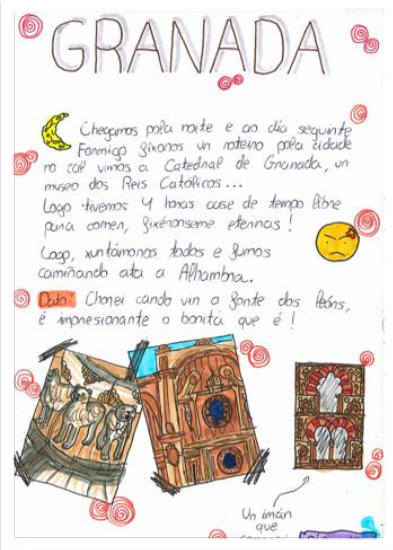 GRANADA
Chegamos pola noite e ao día seguinte
Formigo fíxonos un roteiro pola cidade
no cal vimos a Catedral de Granada, un
museo dos Reis Católicos...
Logo tivemos 4 horas case de tempo libre
para comer, fixéronseme eternas!
Logo, xuntámonos todos e fumos
camiñando ata a Alhambra.
Dato: Chorei cando vin a fonte dos leóns,
é impresionante o bonita que é!
Un imán
que